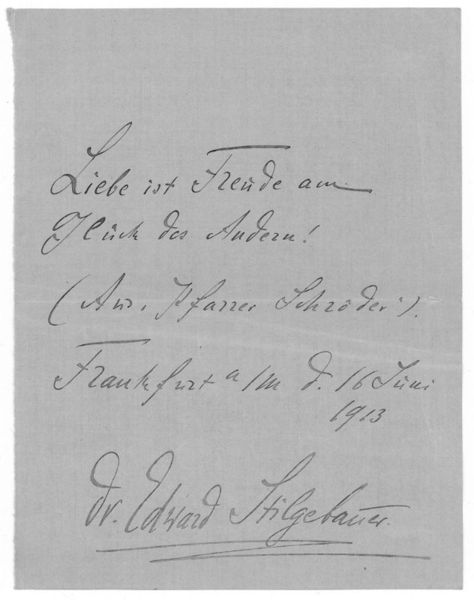 Liebe ist Freude am
Glück des Andern!
(Aus „Pfarrer Schröder“).
Frankfurt a/M d. 16 Juni
1913
Dr. Edward Stilgebauer.